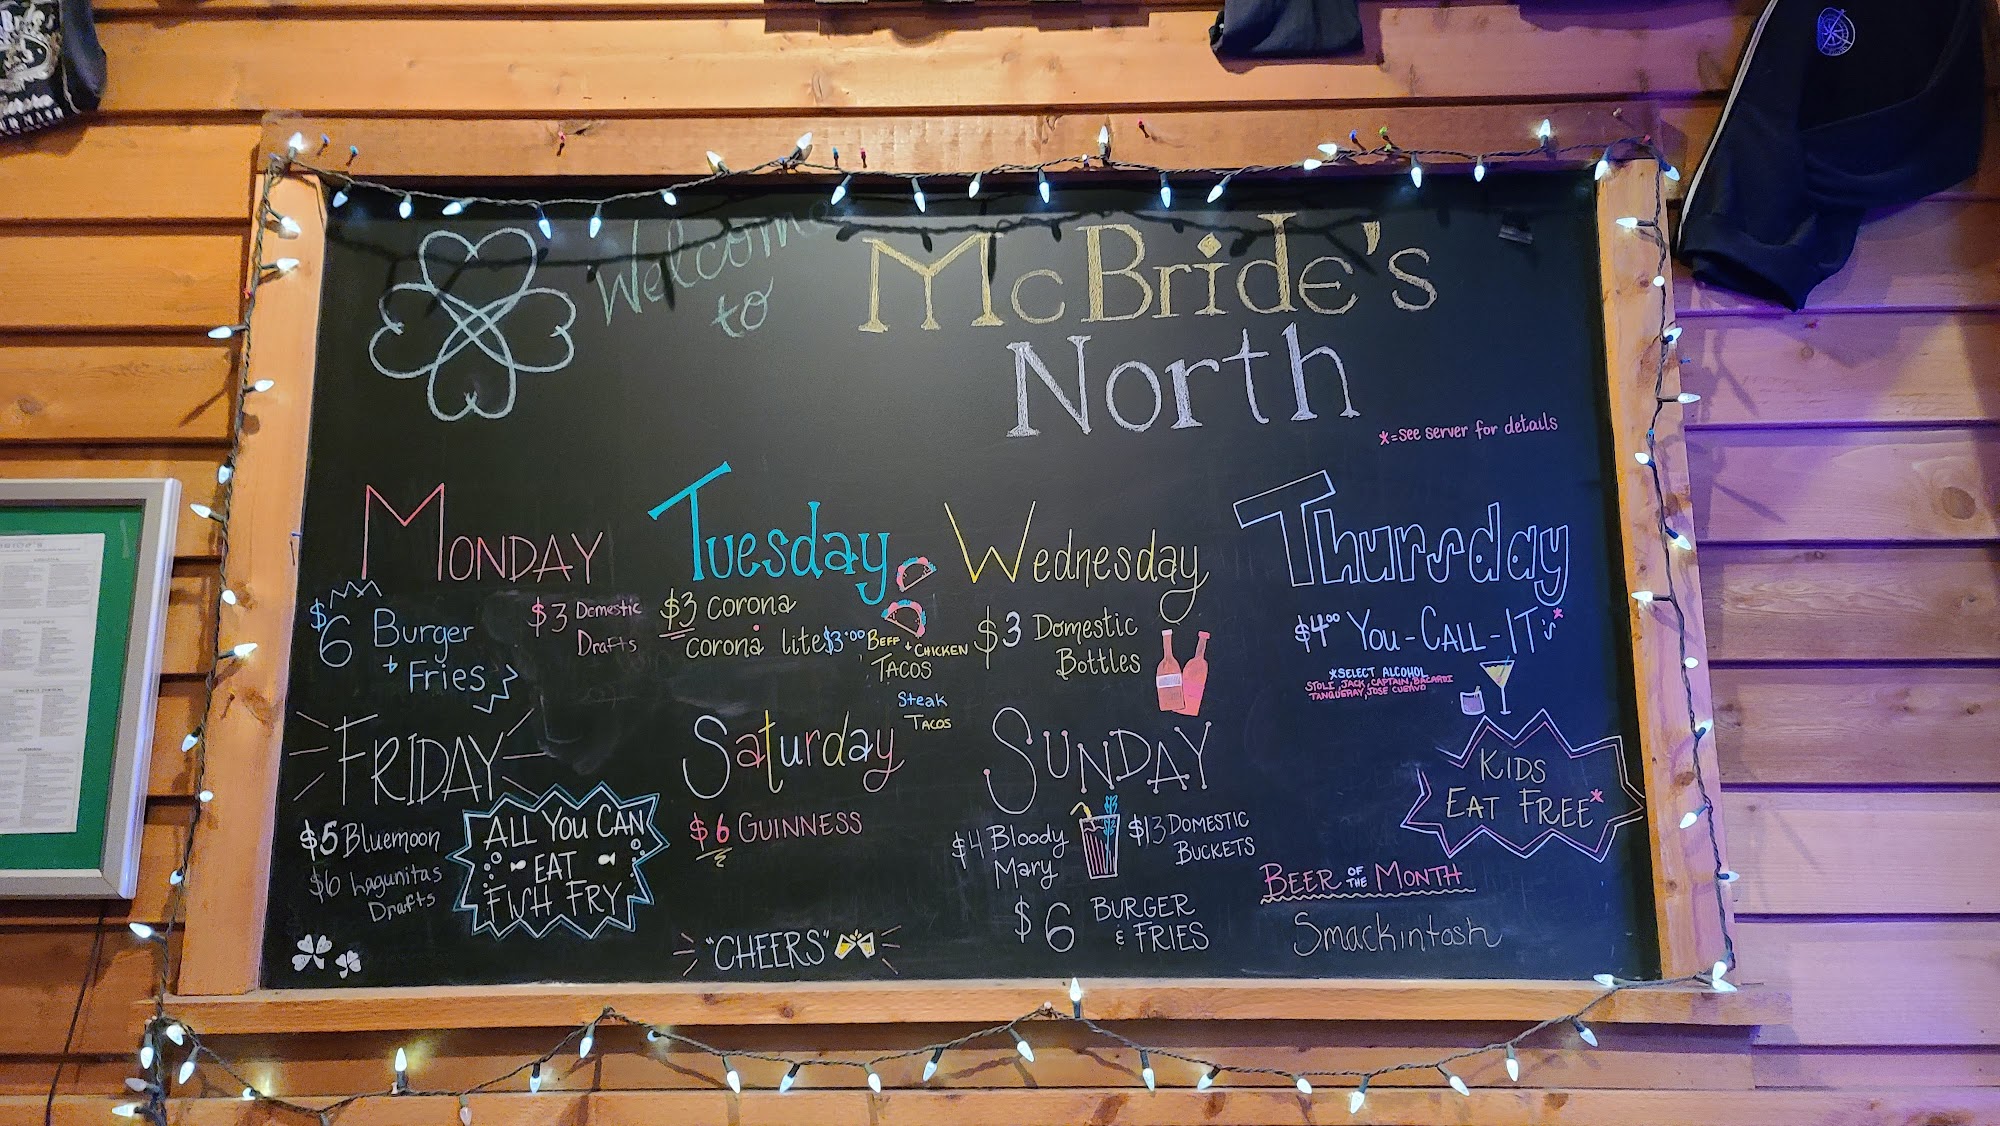 Welcome
to
McBride's
North
*=see server for details
Monday
$6 Burger
+ Fries
$3 Domestic
Drafts
Tuesday
$3 corona
corona lite
$3.00 Beef + Chicken
Tacos
Steak
Tacos
Wednesday
$3 Domestic
Bottles
Thursday
$4.00 You-Call-It's*
*Select Alcohol
Stoli, Jack, Captain, Bacardi
Tanqueray, Jose Cuervo
Kids
Eat Free*
Friday
$5 Bluemoon
$6 Lagunitas
Drafts
All You Can
Eat
Fish Fry
Saturday
$6 Guinness
"Cheers"
Sunday
$4 Bloody
Mary
$13 Domestic
Buckets
$6 Burger
& Fries
Beer of the Month
Smackintosh